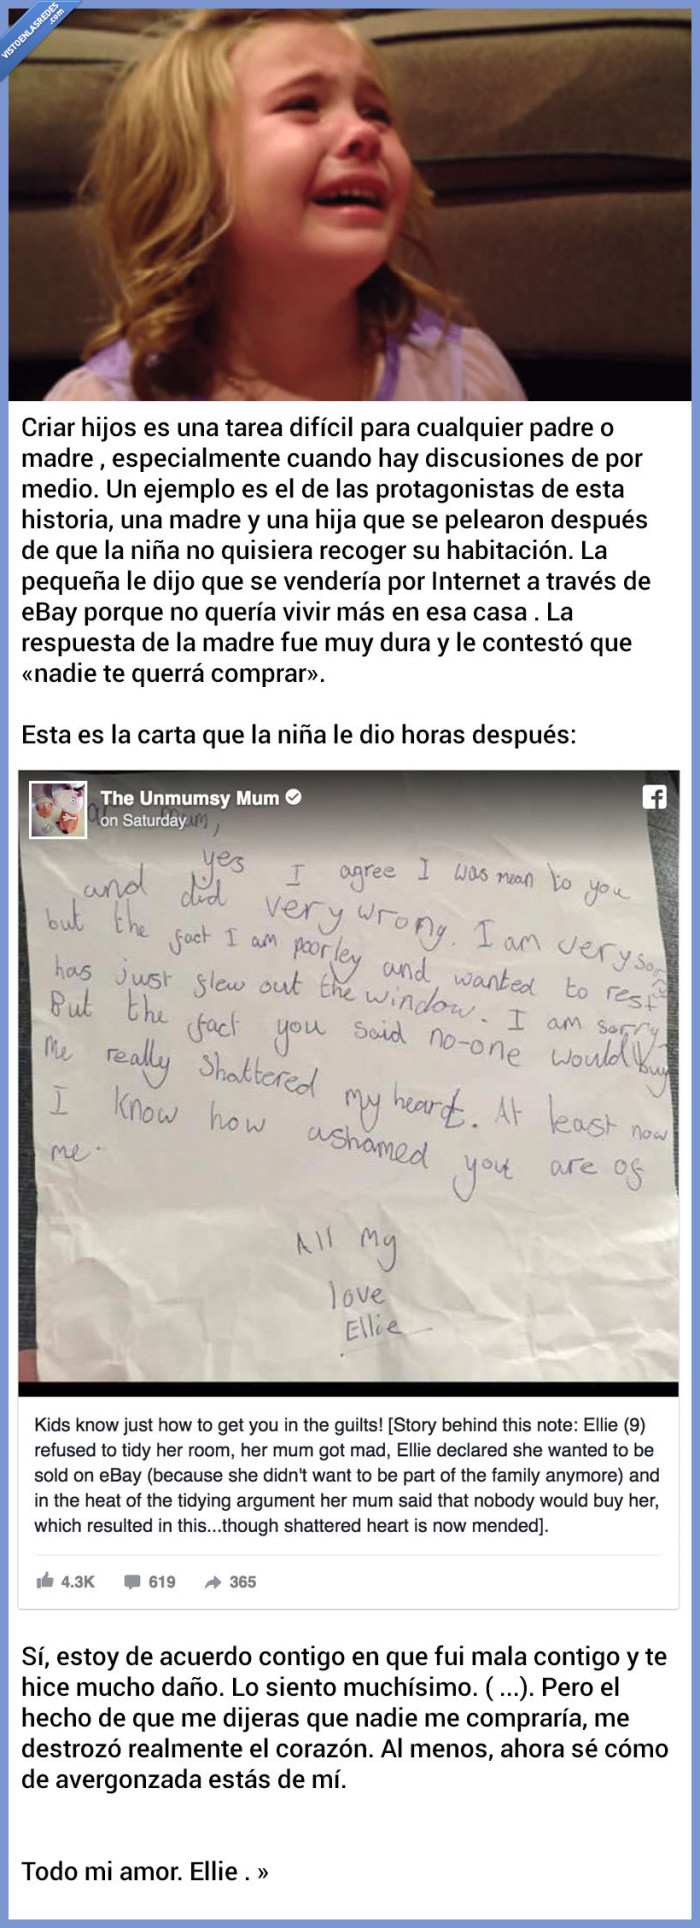 VISTOENLASREDES
.com
Criar hijos es una tarea difícil para cualquier padre o
madre , especialmente cuando hay discusiones de por
medio. Un ejemplo es el de las protagonistas de esta
historia, una madre y una hija que se pelearon después
de que la niña no quisiera recoger su habitación. La
pequeña le dijo que se vendería por Internet a través de
eBay porque no quería vivir más en esa casa . La
respuesta de la madre fue muy dura y le contestó que
«nadie te querrá comprar».
Esta es la carta que la niña le dio horas después:
The Unmumsy Mum
on Saturday
yes I agree I was mean to you
and did very wrong. I am very
but the fact I am poorley and wanted to rest
has just flew out the window. I am sorry
But the fact you said no-one would buy
me really shattered my heart. At least now
I know how ashamed you are of
me.
All my
love
Ellie
Kids know just how to get you in the guilts! [Story behind this note: Ellie (9)
refused to tidy her room, her mum got mad, Ellie declared she wanted to be
sold on eBay (because she didn't want to be part of the family anymore) and
in the heat of the tidying argument her mum said that nobody would buy her,
which resulted in this...though shattered heart is now mended].
4.3K 619 365
Sí, estoy de acuerdo contigo en que fui mala contigo y te
hice mucho daño. Lo siento muchísimo. ( ...). Pero el
hecho de que me dijeras que nadie me compraría, me
destrozó realmente el corazón. Al menos, ahora sé cómo
de avergonzada estás de mí.
Todo mi amor. Ellie . »